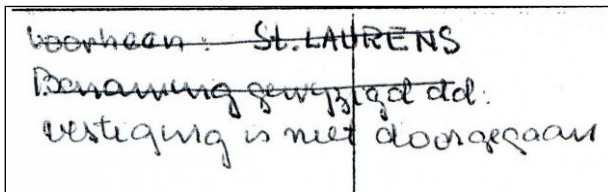 voorheen: St. LAURENS
Benaming gewyzigd dd:
vestiging is niet doorgegaan